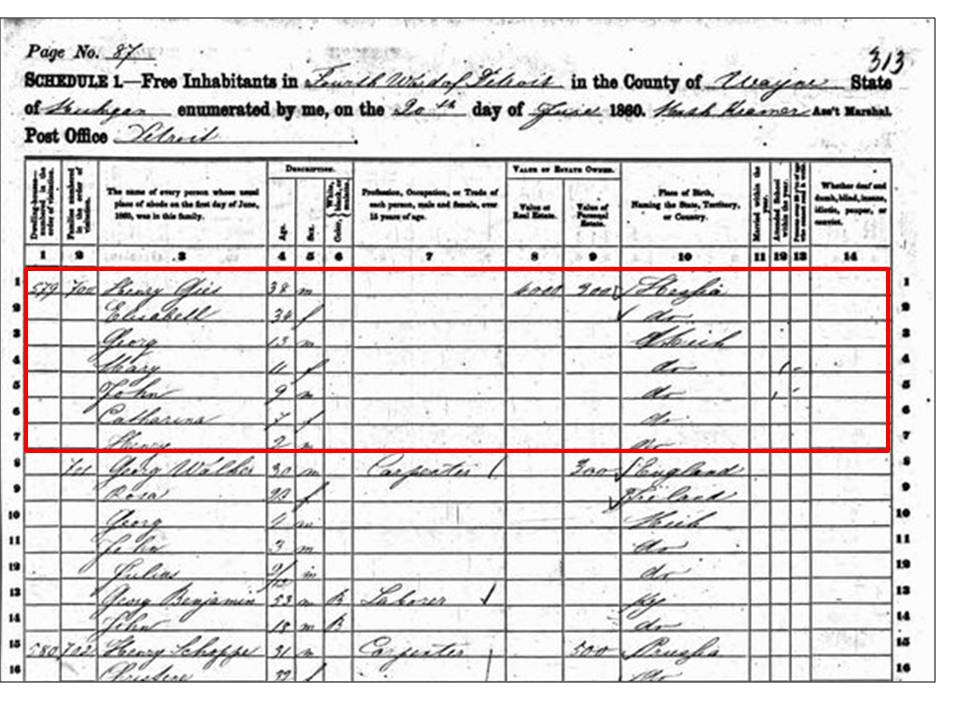 Page No. 87
313
SCHEDULE 1.—Free Inhabitants in Fourth Ward of Detroit in the County of Wayne State
of Michigan enumerated by me, on the 20th day of June 1860. Ass't Marshal.
Post Office Detroit.
DESCRIPTION. VALUE OF ESTATE OWNED.
Dwelling-houses—numbered in the order of visitation. Families numbered in the order of visitation. The name of every person whose usual place of abode on the first day of June, 1860, was in this family. Age. Sex. Color, Profession, Occupation, or Trade of each person, male and female, over 15 years of age. Value of Real Estate. Value of Personal Estate. Place of Birth, Naming the State, Territory, or Country. Married within the year. Attended School within the year. Whether deaf and dumb, blind, insane, idiotic, pauper, or convict.
1 2 3 4 5 6 7 8 9 10 11 12 13 14
1 579 700 Henry Geis 38 m 4000 300 Hessia 1
2 Elisabell 34 f do 2
3 Georg 13 m Mich 3
4 Mary 11 f do 4
5 John 9 m do 5
6 Catharina 7 f do 6
7 Henry 2 m do 7
8 701 Georg Walker 30 m Carpenter 300 England 8
9 Rosa f Ireland 9
10 Georg m Mich 10
11 John 3 m do 11
12 Julius 9/12 m do 12
13 Georg Benjamin 53 m B Laborer Ky 13
14 John 18 m B do 14
15 580 702 Henry Schoppe 31 m Carpenter 500 Prussia 15
16 f do 16